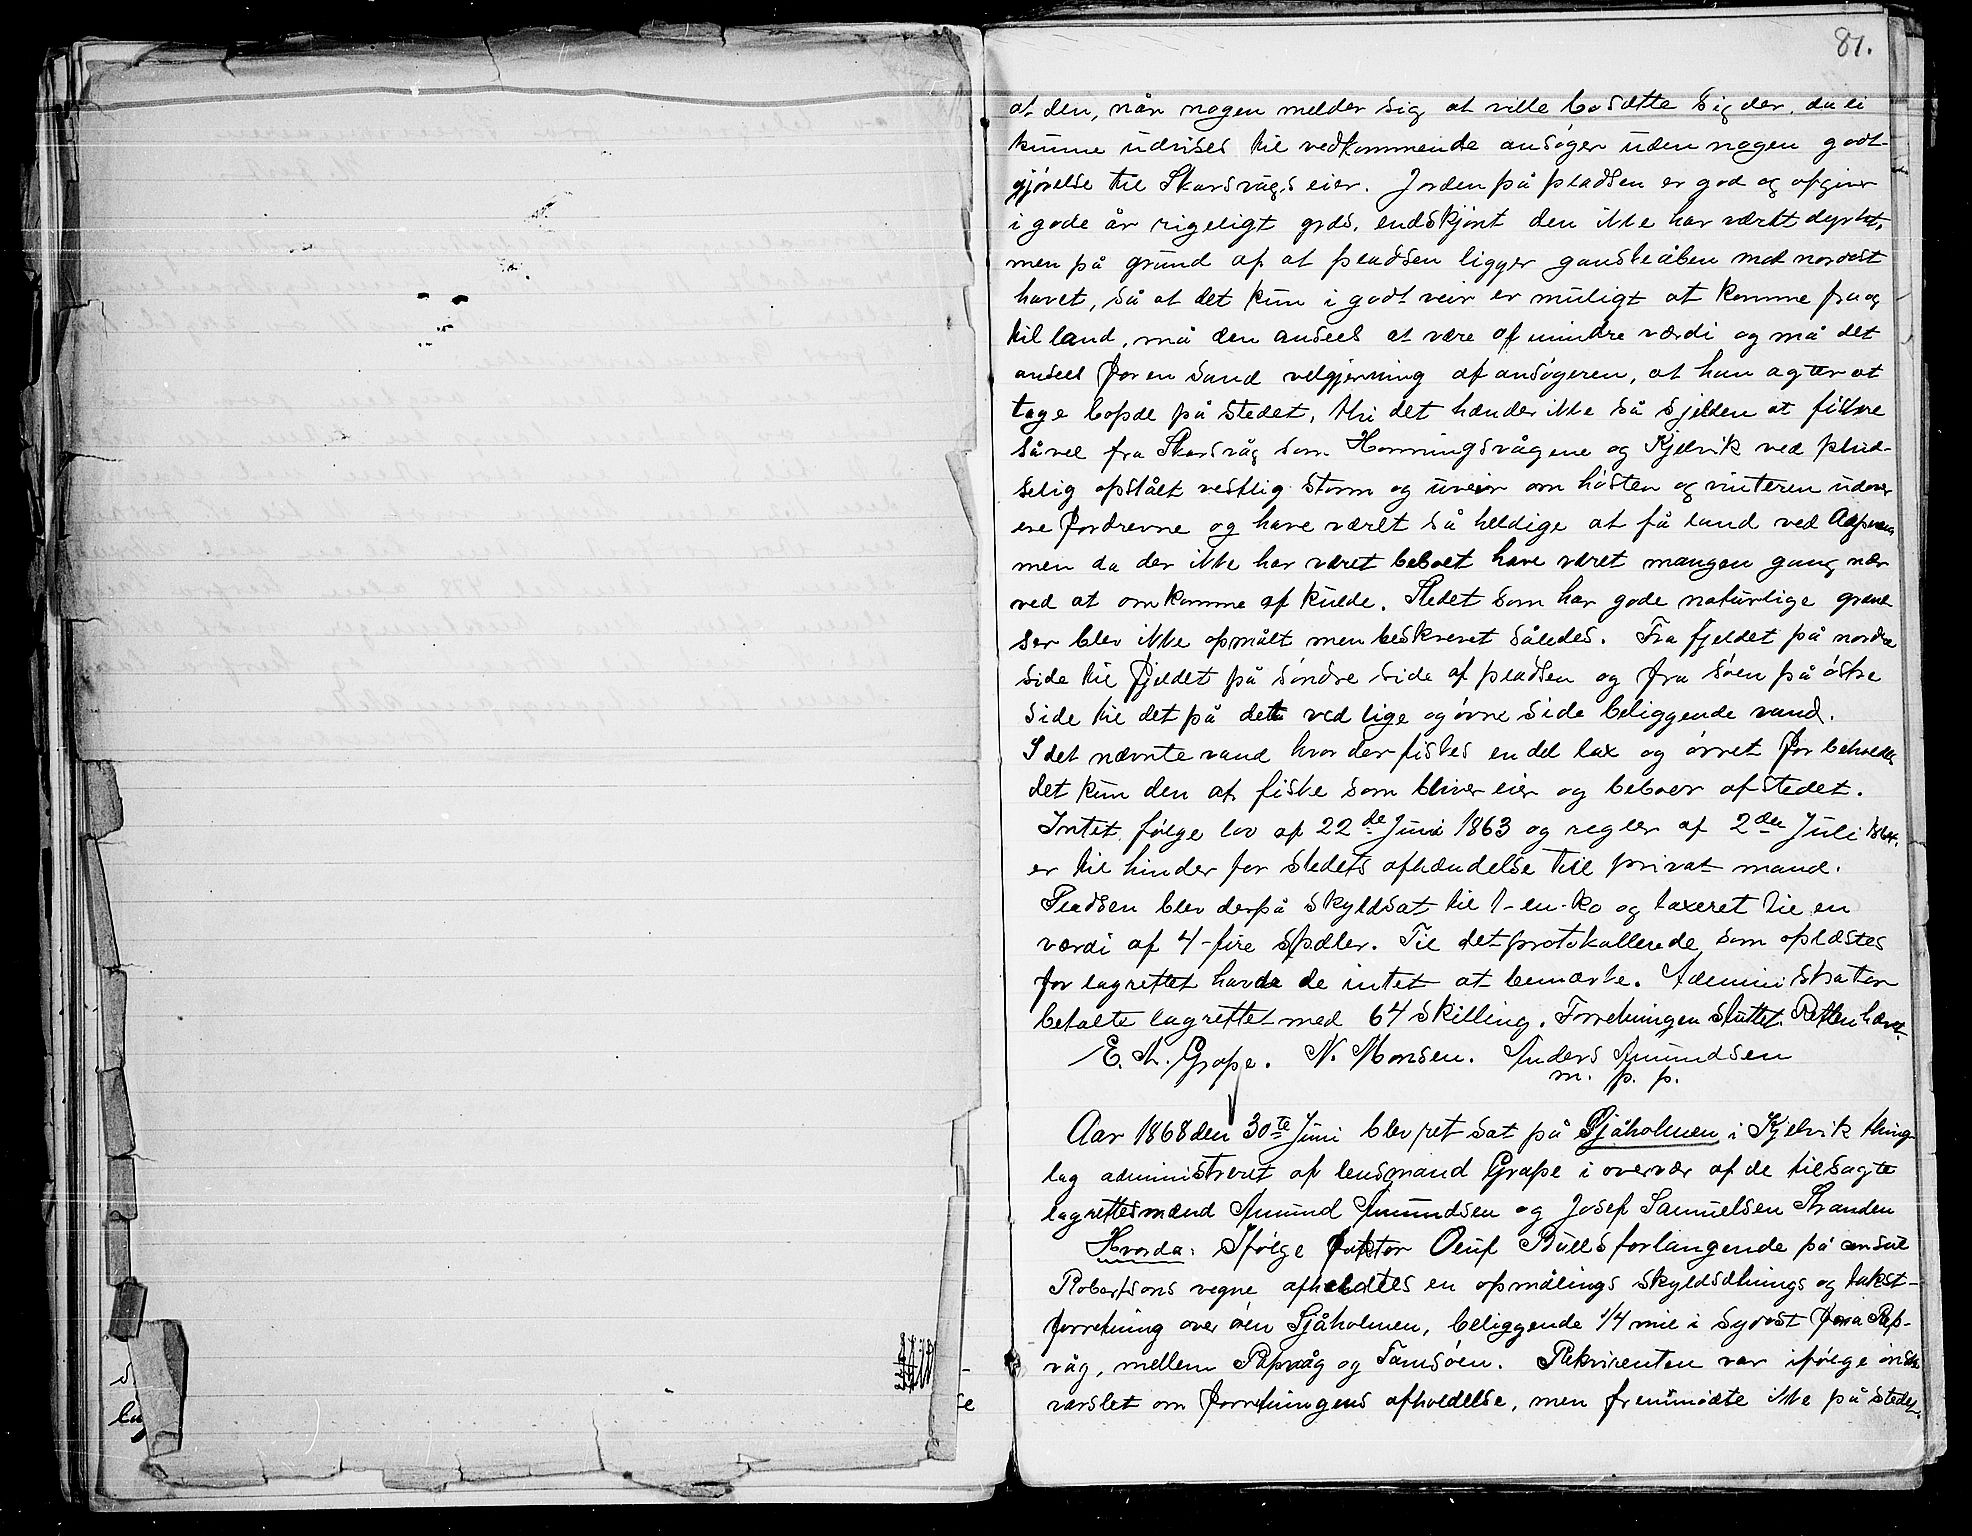 81.
at den, når nogen melder sig at ville bosætte sig der, da ei
kunne udvises til vedkommende ansøger uden nogen godt-
gjørelse til Skarsvågs eier. Jorden på pladsen er god og afgiver
i gode år rigeligt græs, endskjønt den ikke har været dyrket,
men på grund af at pladsen ligger ganske åben mod nordost
havet, så at det kun i godt veir er muligt at komme fra og
til land, må den ansees at være af mindre værdi og må det
ansees for en sand velgjerning af ansøgeren, at han agter at
tage bopæl på stedet, thi det hænder ikke så sjelden at fiskere
såvel fra Skarsvåg som Honningsvågene og Kjelvik ved plud-
selig opstålt vestlig storm og uveir om høsten og vinteren udover
ere fordrevne og have været så heldige at få land ved
men da der ikke har været beboet have været mangen gang nær
ved at omkomme af kulde. Stedet som har gode naturlige grænd
ser blev ikke opmålt men beskrevet således. Fra fjeldet på nordre
side til fjeldet på søndre side af pladsen og fra søen på østre
side til det på dets vedlige og øvre side beliggende vand.
I det nævnte vand hvor der fiskes en del lax og ørret forbeholdes
det kun den at fiske som bliver eier og beboer af stedet.
Intet følge lov af 22de Juni 1863 og regler af 2den Juli 1864.
er til hinder for stedets afhændelse till privat mand.
Pladsen blev derpå skyldsat til 1-en-ko og taxeret til en
værdi af 4-fire spdler. Til det protokollerede som oplæstes
for lagrettet havde de intet at bemærke. Administrator
betalte lagrettet med 64 skilling. Forretningen sluttet. Retten hævet.
E. A. Grape. N. Monsen. Anders Amundsen
m. p. p.
Aar 1868 den 30te Juni blev ret sat på Sjåholmen i Kjelvik thing
lag administreret af lensmand Grape i overvær af de tilsagte
lagrettesmænd Amund Amundsen og Josef Samuelsen Stranden
Hvorda: Ifølge faktor Oluf Bulls forlangende på consul
Robertsons vegne afholdtes en opmålings skyldsætnings og takst-
forretning over øen Sjåholmen, beliggende 1/4 mil i sydost fra Rep-
våg, mellem Repvåg og Tamsøen. Rekvirenten var ifølge ønske
varslet om forretningens afholdelse, men fremmødte ikke på stedet.